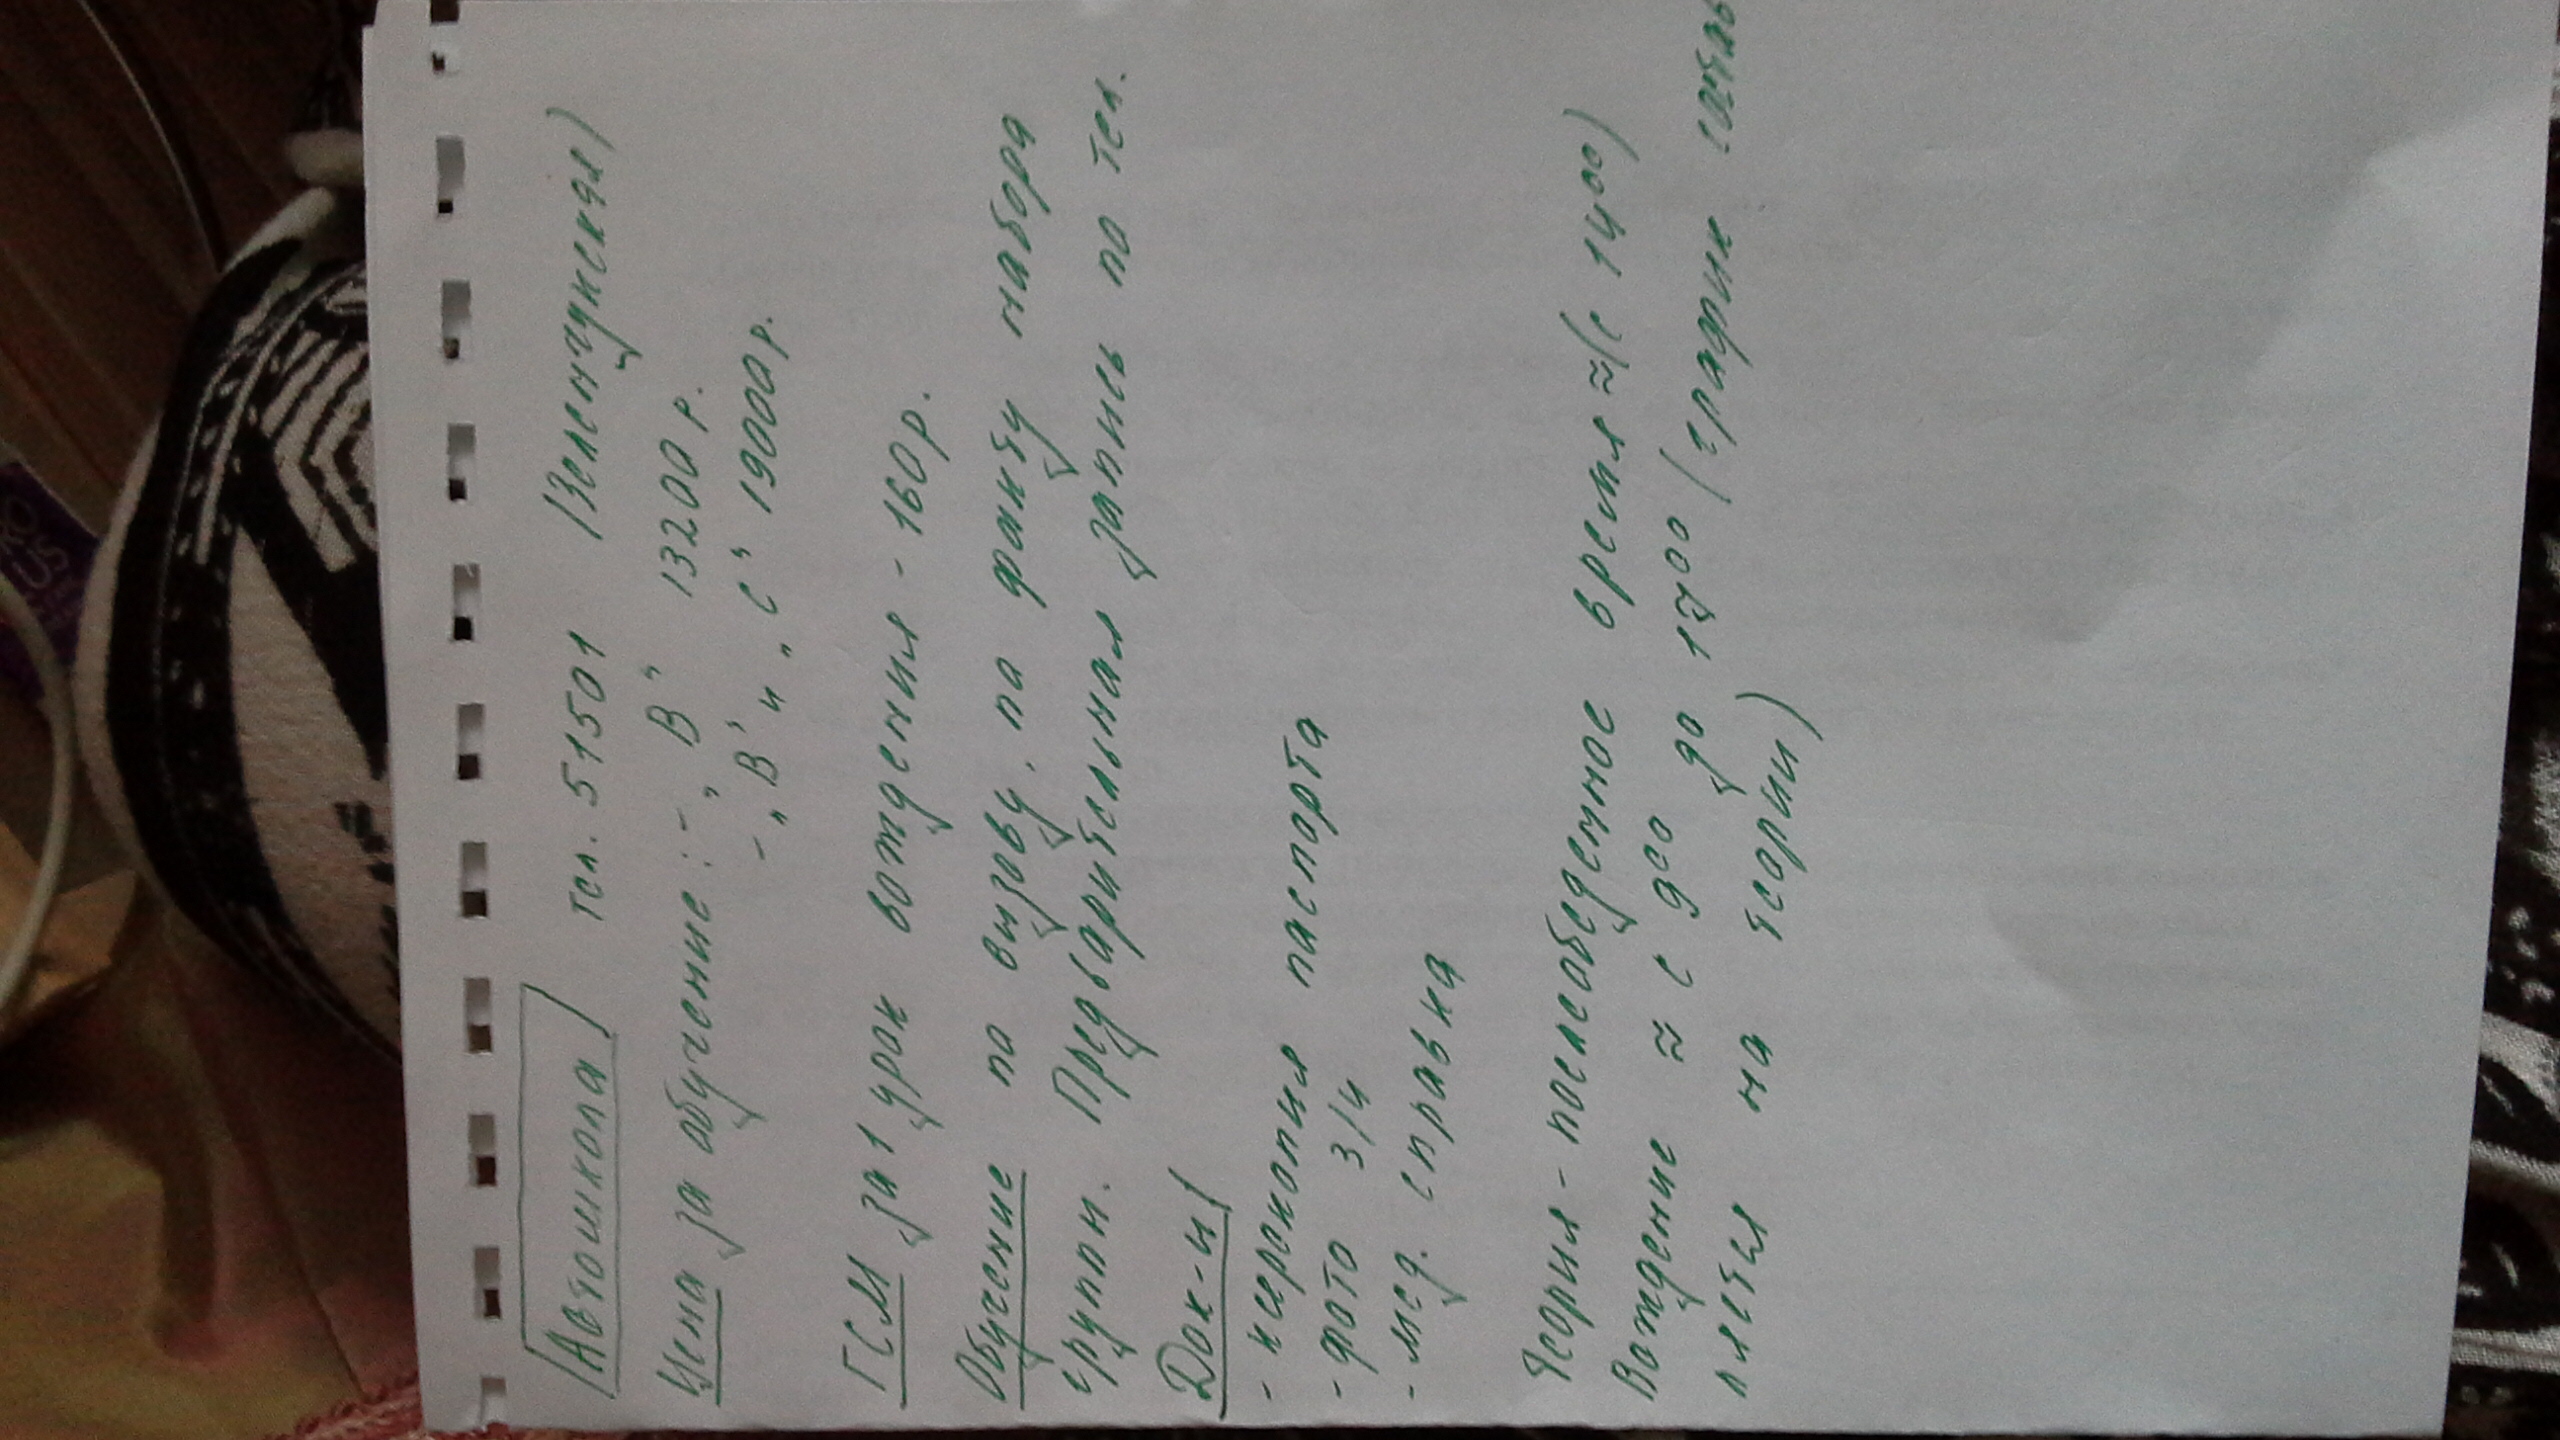 Автошкола тел. 51501 (Зеленчукская)
Цена за обучение: - „В" 13200 р.
- „В" и „С" 19000 р.
ГСМ за 1 урок вождения - 160 р.
Обучение по вызову, по факту набора
группы. Предварительная запись по тел.
Док-ы
- ксерокопия паспорта
- фото 3/4
- мед. справка
Теория - послеобеденное время ≈ (с 14 00)
Вождение ≈ с 9 00 до 17 00 (график состав
ляется на теории)